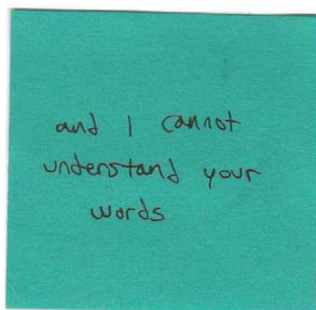 and I cannot
understand your
words